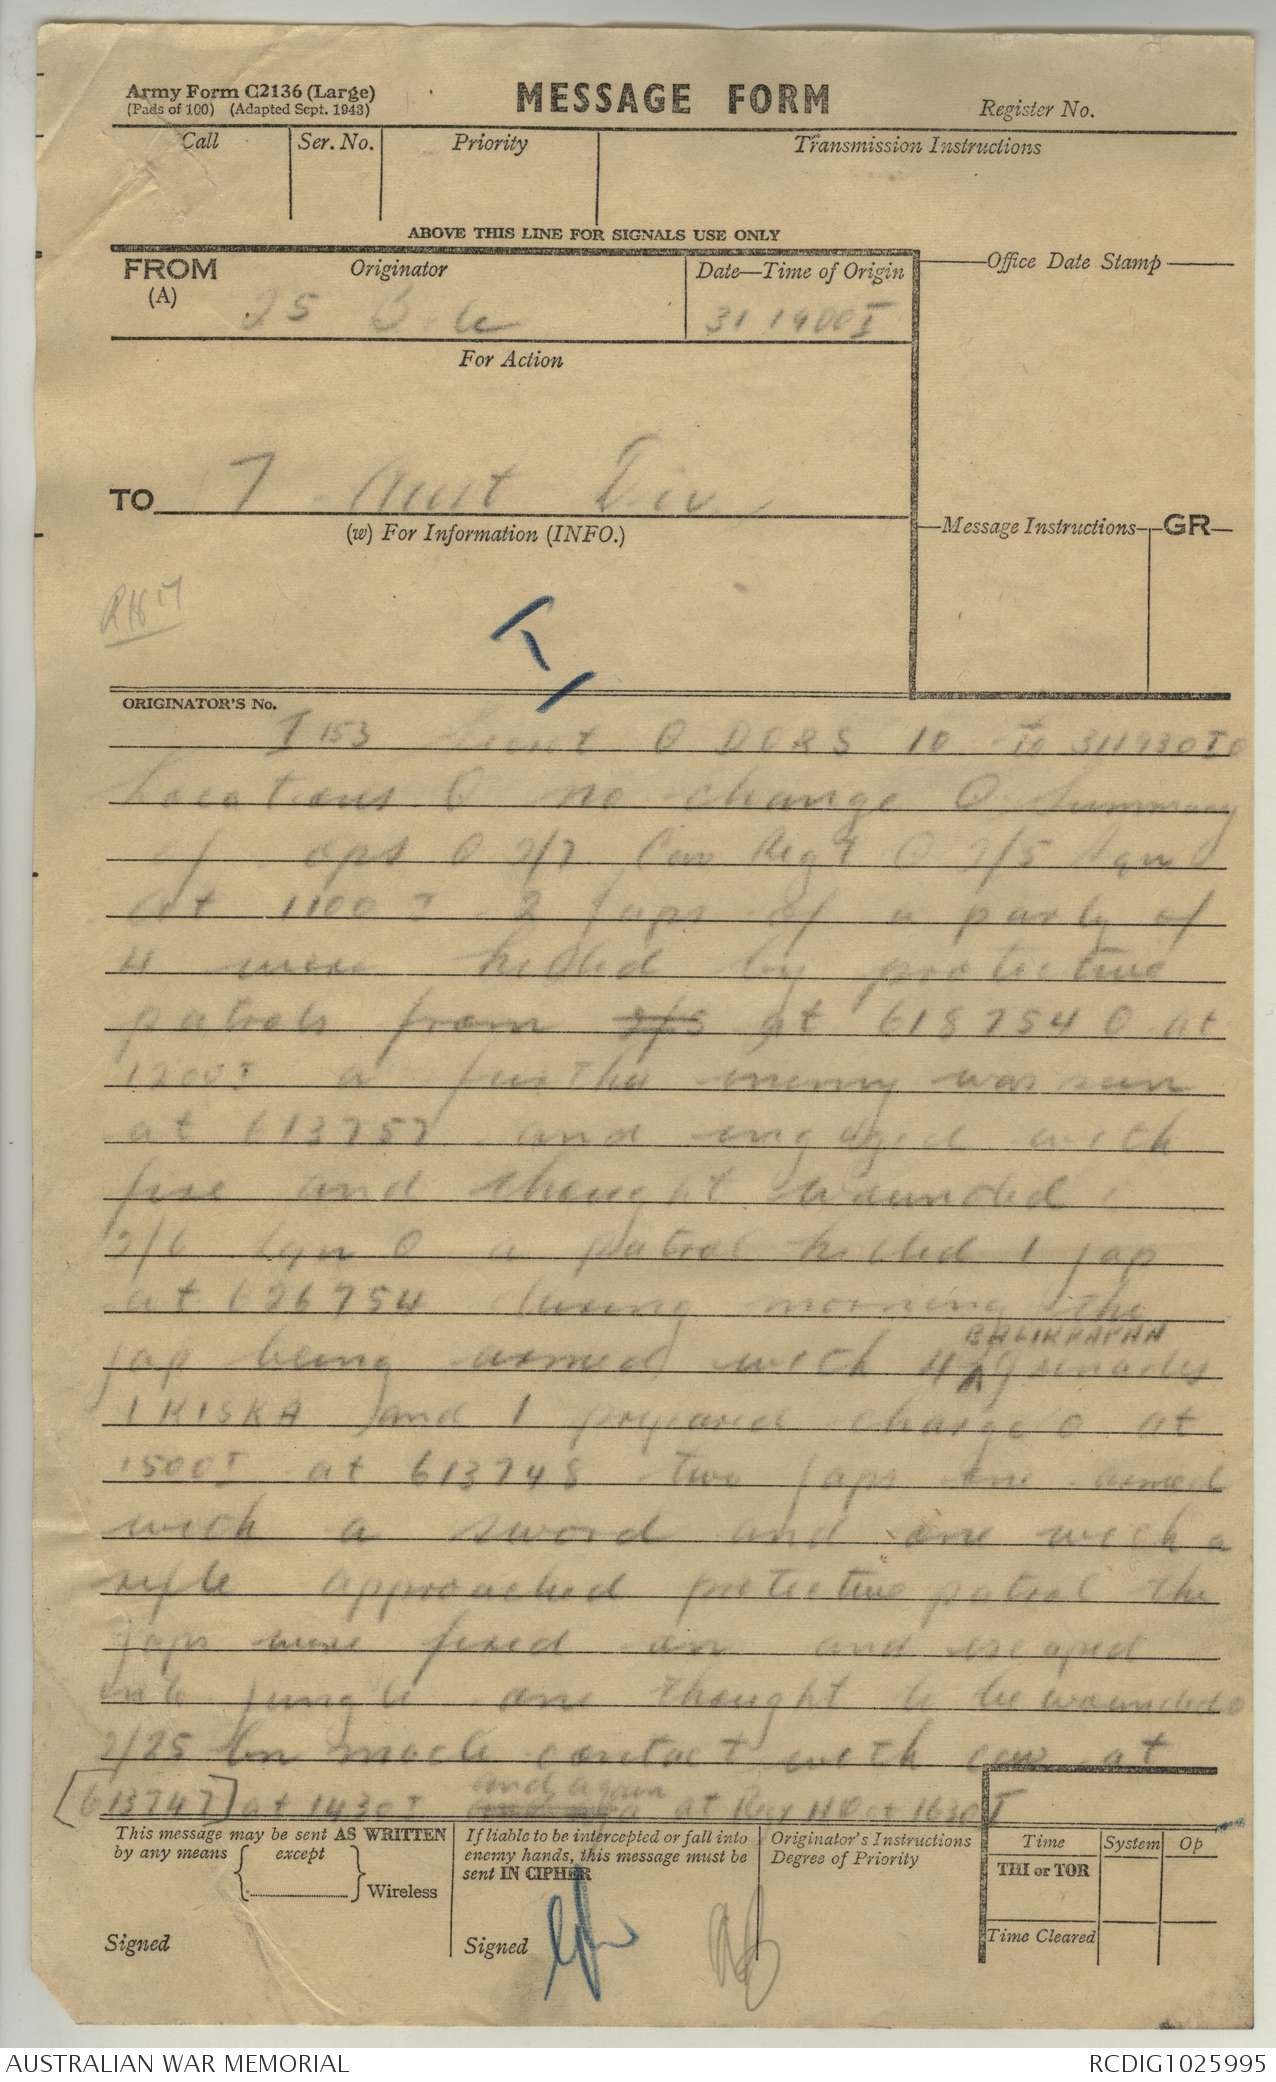 Army Form C2136 (Large)
(Pads of 100) (Adapted Sept. 1943)
MESSAGE FORM
Register No.
Call
Ser. No.
Priority
Transmission Instructions
ABOVE THIS LINE FOR SIGNALS USE ONLY
FROM
(A)
Originator
Date—Time of Origin
Office Date Stamp
25 Bde
31 1900 I
For Action
TO
7 Aust Div
(w) For Information (INFO.)
Message Instructions
GR
I
ORIGINATOR'S No.
I 153 O DORS 10 to 311930I O
Locations O no change O Summary
of ops O 2/7 Cav Regt O 2/5 Sqn O
at 1100 I 2 japs of a party of
4 were killed by protective
patrols from 2/5 at 618754 O at
1200I a further enemy was seen
at 613757 and engaged with
fire and thought wounded
2/6 Sqn O a patrol killed 1 jap
at 626754 during morning the
BALIKPAPAN
jap being armed with 4 grenades
1 KISKA and 1 prepared charge O at
1500I at 613748 two japs one armed
with a sword and one with a
rifle approached protective patrol the
japs were fired on and escaped
into jungle one thought to be wounded O
2/25 Bn made contact with cav at
and again
[613747] at 1430I at Reg HQ at 1630I
This message may be sent AS WRITTEN
by any means
except
Wireless
Signed
If liable to be intercepted or fall into
enemy hands, this message must be
sent IN CIPHER
Signed
Originator's Instructions
Degree of Priority
Time
System
Op
THI or TOR
Time Cleared
AUSTRALIAN WAR MEMORIAL
RCDIG1025995